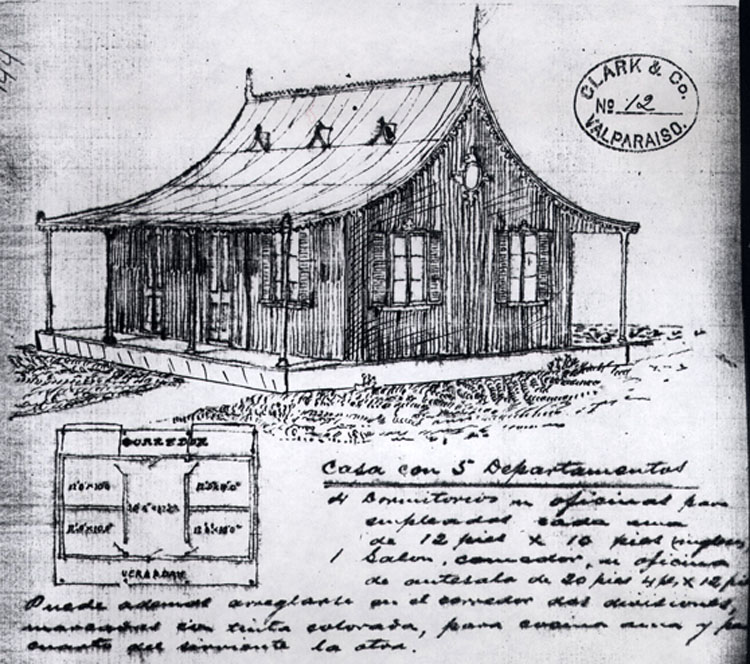 CLARK & Co.
No 12
VALPARAISO.
144
CORREDOR
VERANDAH
Casa con 5 Departamentos
4 Dormitorios u oficinas para
empleados cada una
de 12 pies x 10 pies (ingles)
1 Salon, comedor, u oficina
de antesala de 20 pies 4 p. x 12 p
Puede ademas arreglarse en el corredor dos divisiones,
marcadas con tinta colorada, para cocina una y para
cuarto del sirviente la otra.